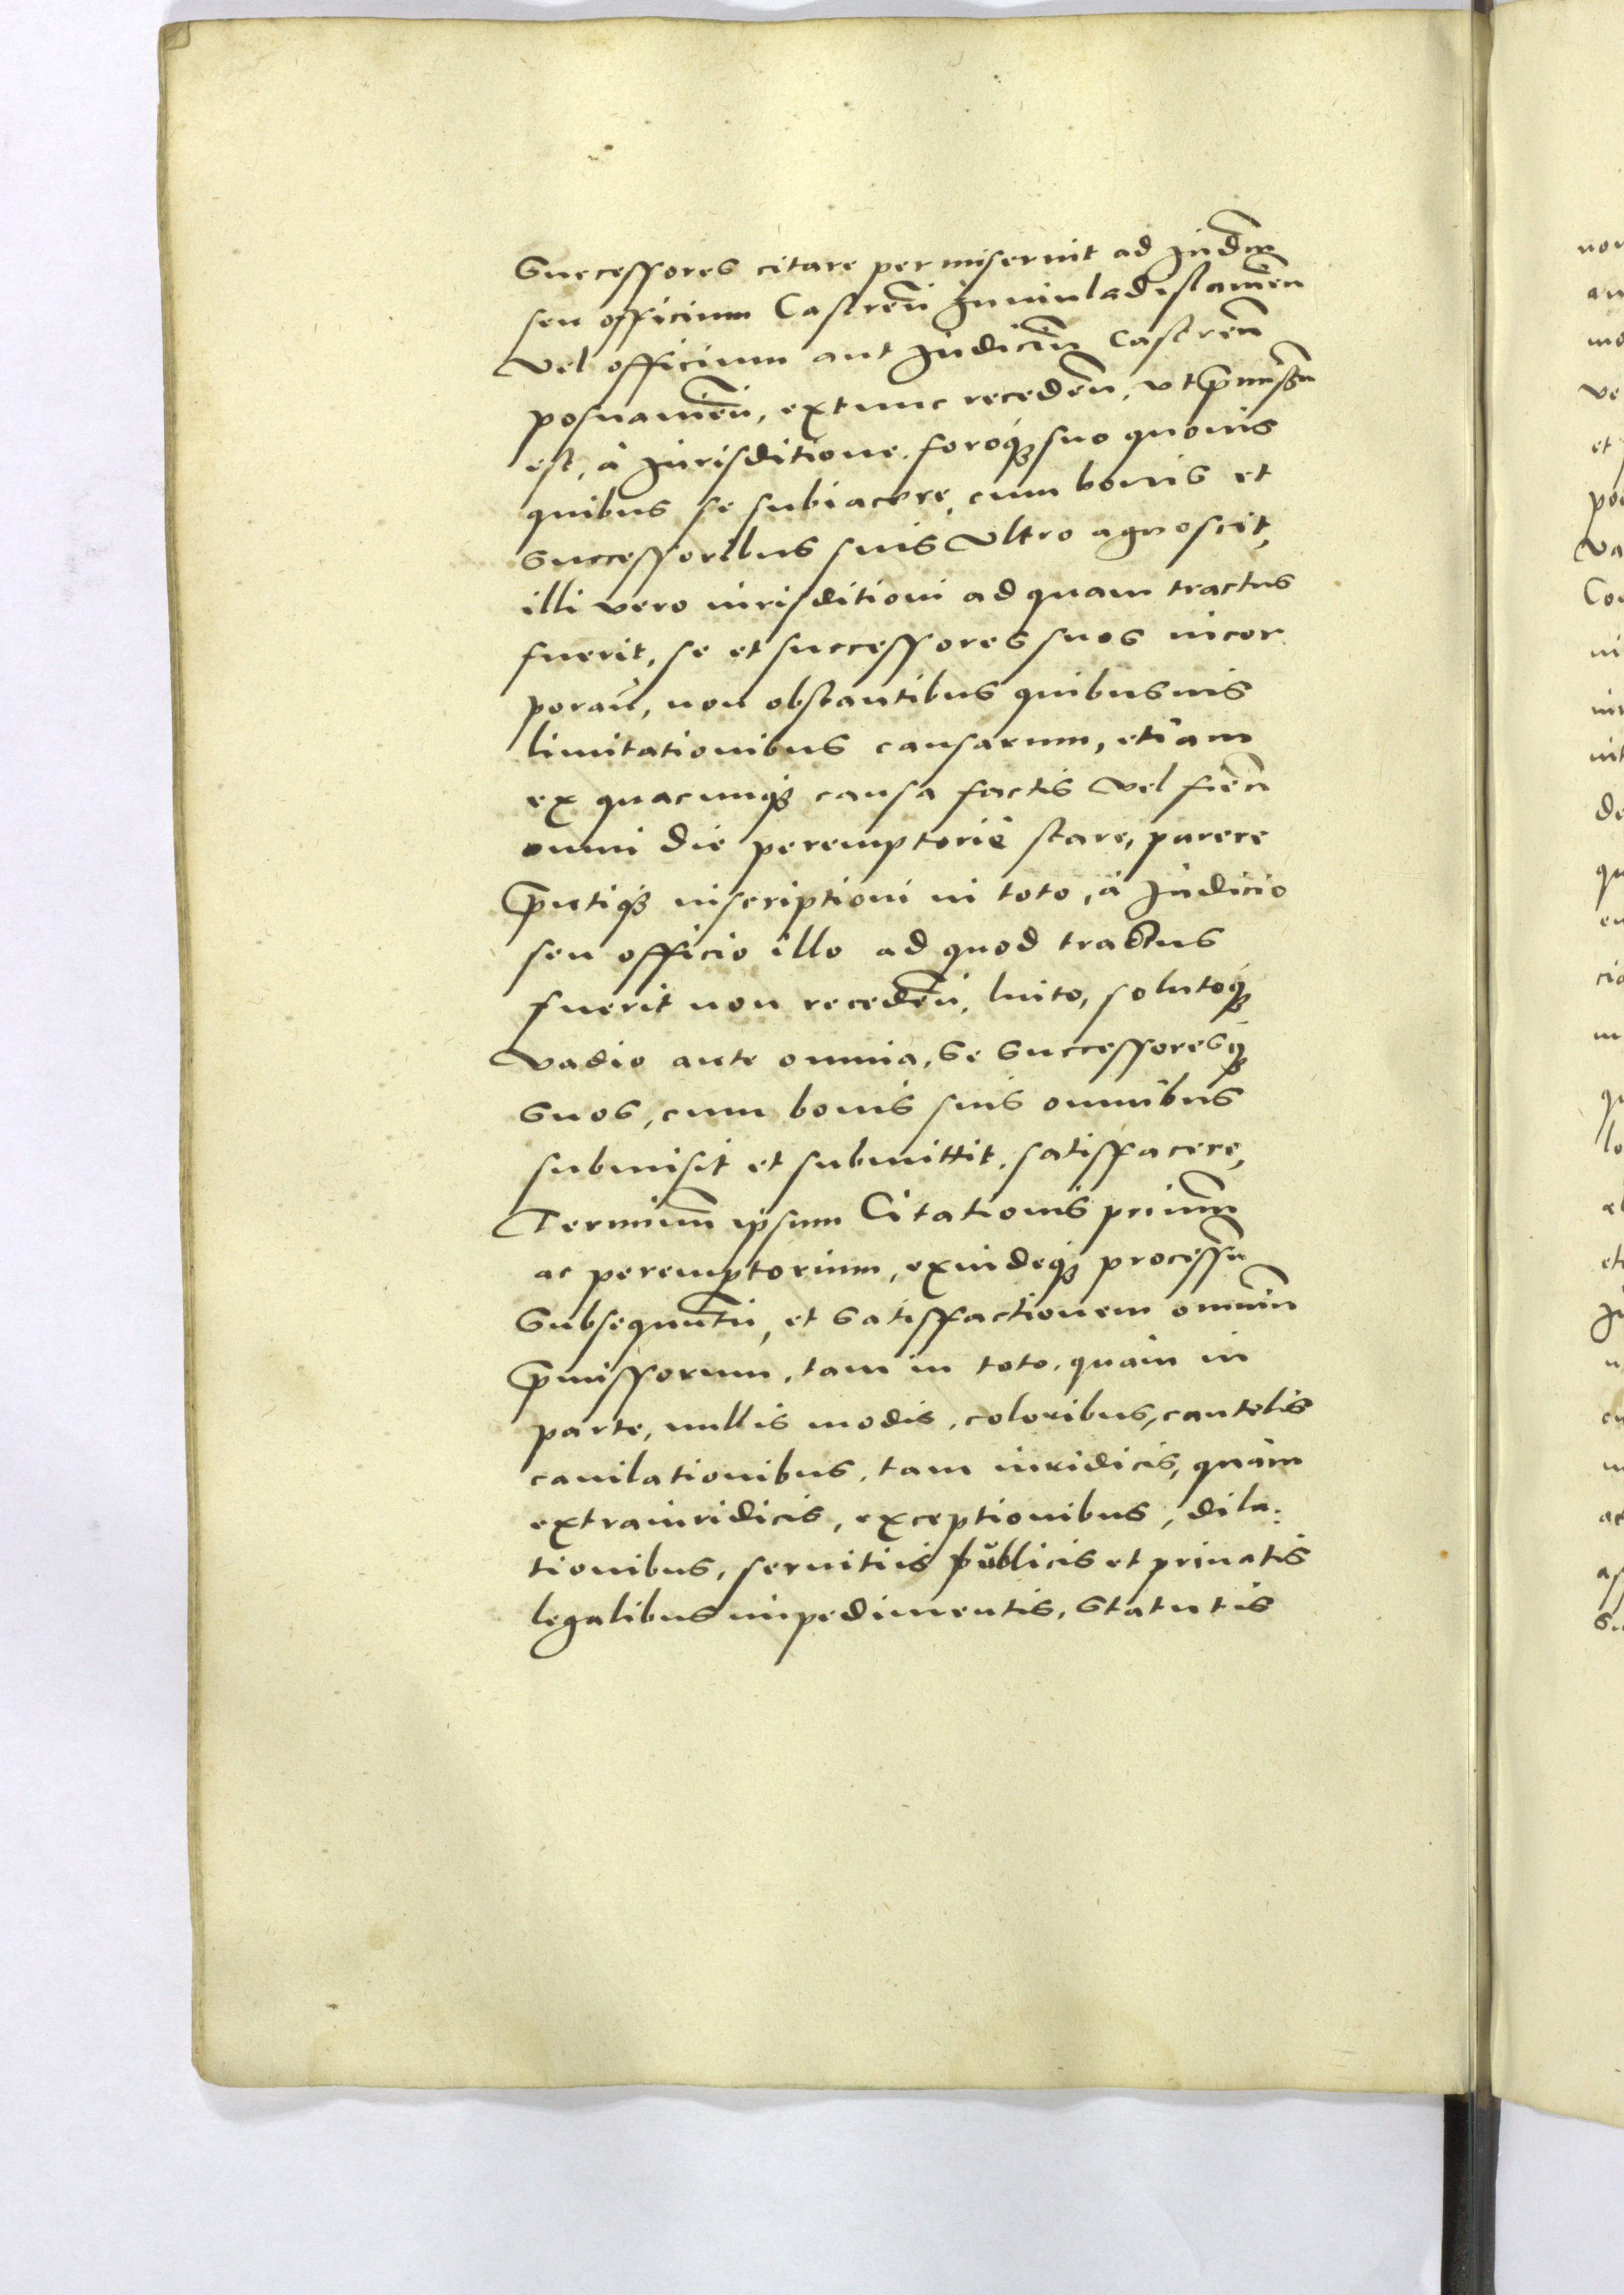 Successores citare permiserint ad Judm̄
seu officium Castren̄ Juniuladislauien̄
vel officium aut Judiciū Castren̄
posnanien̄, extunc receden̄, vt p̄missū
est, à Jurisditione foroq3 suo quouis
quibus se subiacere, cum bonis et
Successoribus suis Vltro agnoscit,
illi vero iurisditioni ad quam tractus
fuerit, se et successores suos incor
poraū, non obstantibus quibusuis
limitationibus causarum, etiam
ex quacunq3 causa factis Vel fien̄
omni die peremptoriè stare, parere
p̄ntiq3 inscriptioni in toto, à Judicio
seu officio illo ad quod tractus
fuerit non receden̄, luito, solutoq3
Vadio ante omnia, Se Successoresq3
Suos, cum bonis suis omnibus
submisit et submittit, satisfacere,
Terminū ipsum Citationis primū
ac peremptorium, exindeq3 processū
Subsequutū, et Satisfactionem omniū
p̄missorum, tam in toto, quàm in
parte, nullis modis, coloribus, cautelis
cauilationibus, tam iuridicis, quàm
extraiuridicis, exceptionibus, dila:
tionibus, seruitiis publicis et priuatis
legalibus impedimentis, Statutis